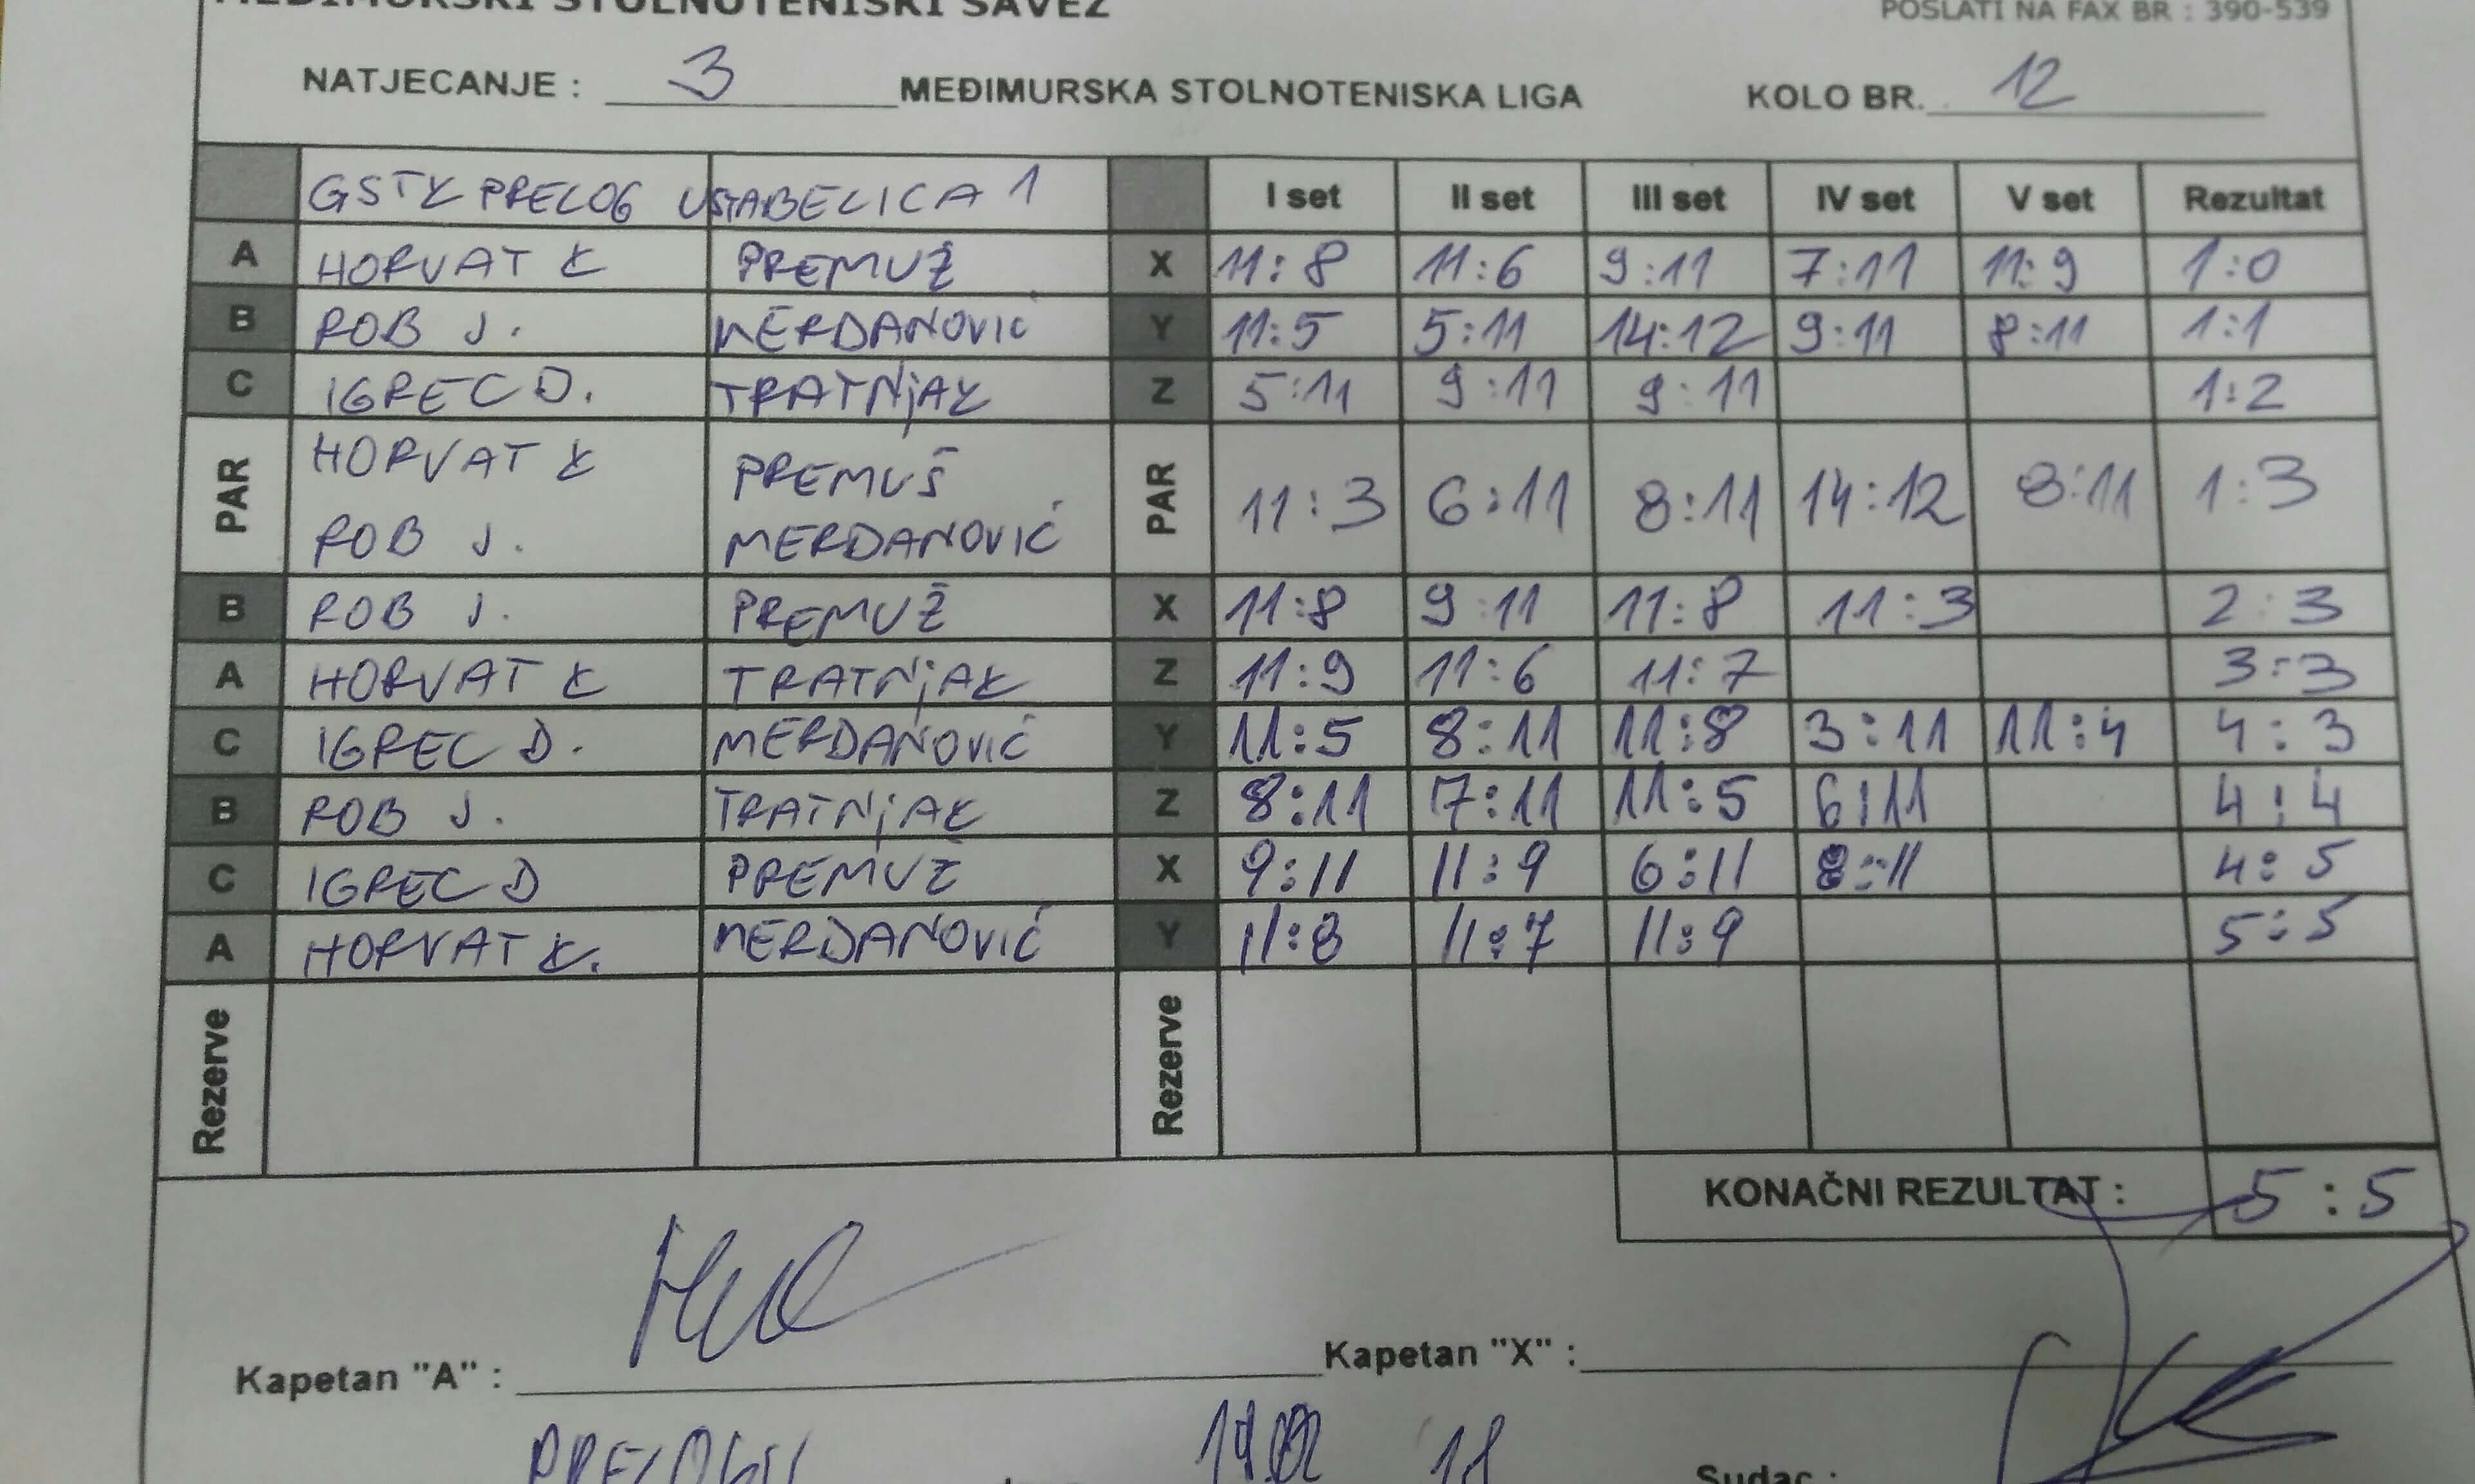 MEĐIMURSKI STOLNOTENISKI SAVEZ POSLATI NA FAX BR : 390-539
NATJECANJE : 3 MEĐIMURSKA STOLNOTENISKA LIGA KOLO BR. 12
GSTK PRELOG USTABELICA 1 I set II set III set IV set V set Rezultat
A HORVAT K PREMUŽ X 11:8 11:6 9:11 7:11 11:9 1:0
B ROB J. MERDANOVIC Y 11:5 5:11 14:12 9:11 8:11 1:1
C IGREC D. TRATNjAK Z 5:11 9:11 9:11 1:2
PAR HORVAT K PREMUŠ PAR 11:3 6:11 8:11 14:12 8:11 1:3
ROB J. MERDANOVIĆ
B ROB J. PREMUŽ X 11:8 9:11 11:8 11:3 2:3
A HORVAT K TRATNjAK Z 11:9 11:6 11:7 3:3
C IGREC D. MERDANOVIĆ Y 11:5 8:11 11:8 3:11 11:4 4:3
B ROB J. TRATNjAK Z 8:11 7:11 11:5 6:11 4:4
C IGREC D PREMUŽ X 9:11 11:9 6:11 8:11 4:5
A HORVAT K. MERDANOVIĆ Y 11:8 11:7 11:9 5:5
Rezerve Rezerve
KONAČNI REZULTAT : 5:5
Kapetan "A" : Kapetan "X" :
PRELOGU 18 Sudac :